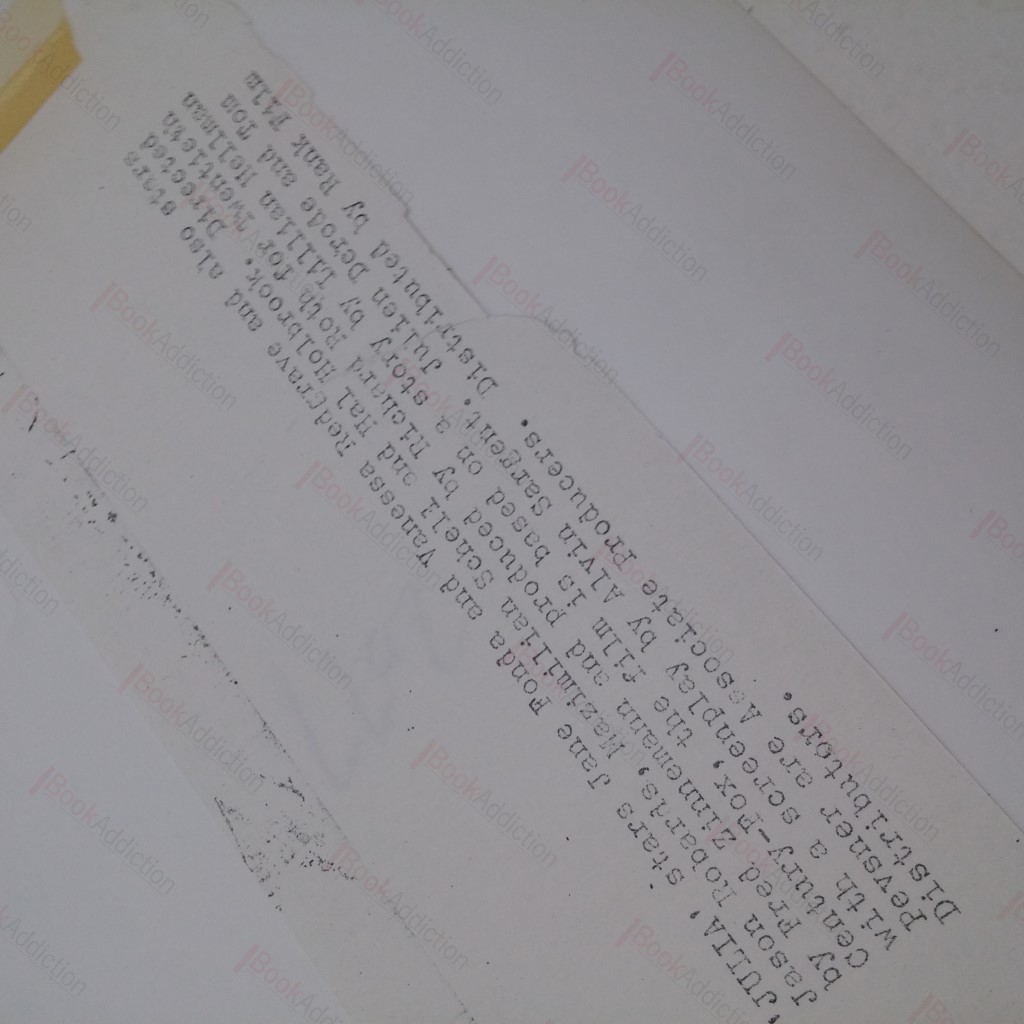 'JULIA' stars Jane Fonda and Vanessa Redgrave and also stars
Jason Robards, Mazimilian Schell and Hal Holbrook. Directed
by Fred Zinnemann and produced by Richard Roth for Twentieth
Century-Fox, the film is based on a story by Lillian Hellman
with a screenplay by Alvin Sargent. Julien Derode and Tom
Pevsner are Associate Producers. Distributed by Rank Film
Distributors.
BookAddiction